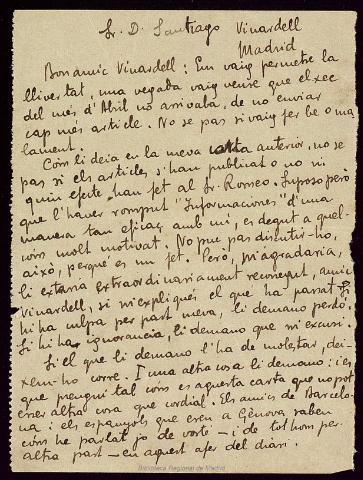 Sr. D. Santiago Vinardell
Madrid
Bon amic Vinardell: Em vaig permetre la
llivertat, una vegada vaig veure que el xec
del més d'Abril no arrivaba, de no enviar
cap més article. No se pas si vaig fer be o ma
lament.
Com li deia en la meva carta anterior, no se
pas si els articles s'han publicat o no ni
quin efecte han fet al Sr. Romeo. Suposo però
que l'haver romput "Informaciones" d'una
manera tan eficaç amb mi, es degut a quel-
com molt motivat. No puc pas discutir-ho,
això, perquè es un fet. Però, m'agradaria,
li estaria extraordinariament reconegut, amic
Vinardell, si m'expliqués el que ha passat. Si
hi ha culpa per part meva, li demano perdó.
Si hi ha ignorancia, li demano que m'excusi.
Si el que li demano l'ha de molestar, dei-
xem-ho corre. I una altra cosa li demano: i es,
que prengui tal com es aquesta carta que no pot
esser altra cosa que cordial. Els amics de Barcelo-
na i els espanyols que eren a Gènova saben
còm he parlat jo de vostè – i de tothom per
altra part – en aquest afer del diari.
Biblioteca Regional de Madrid